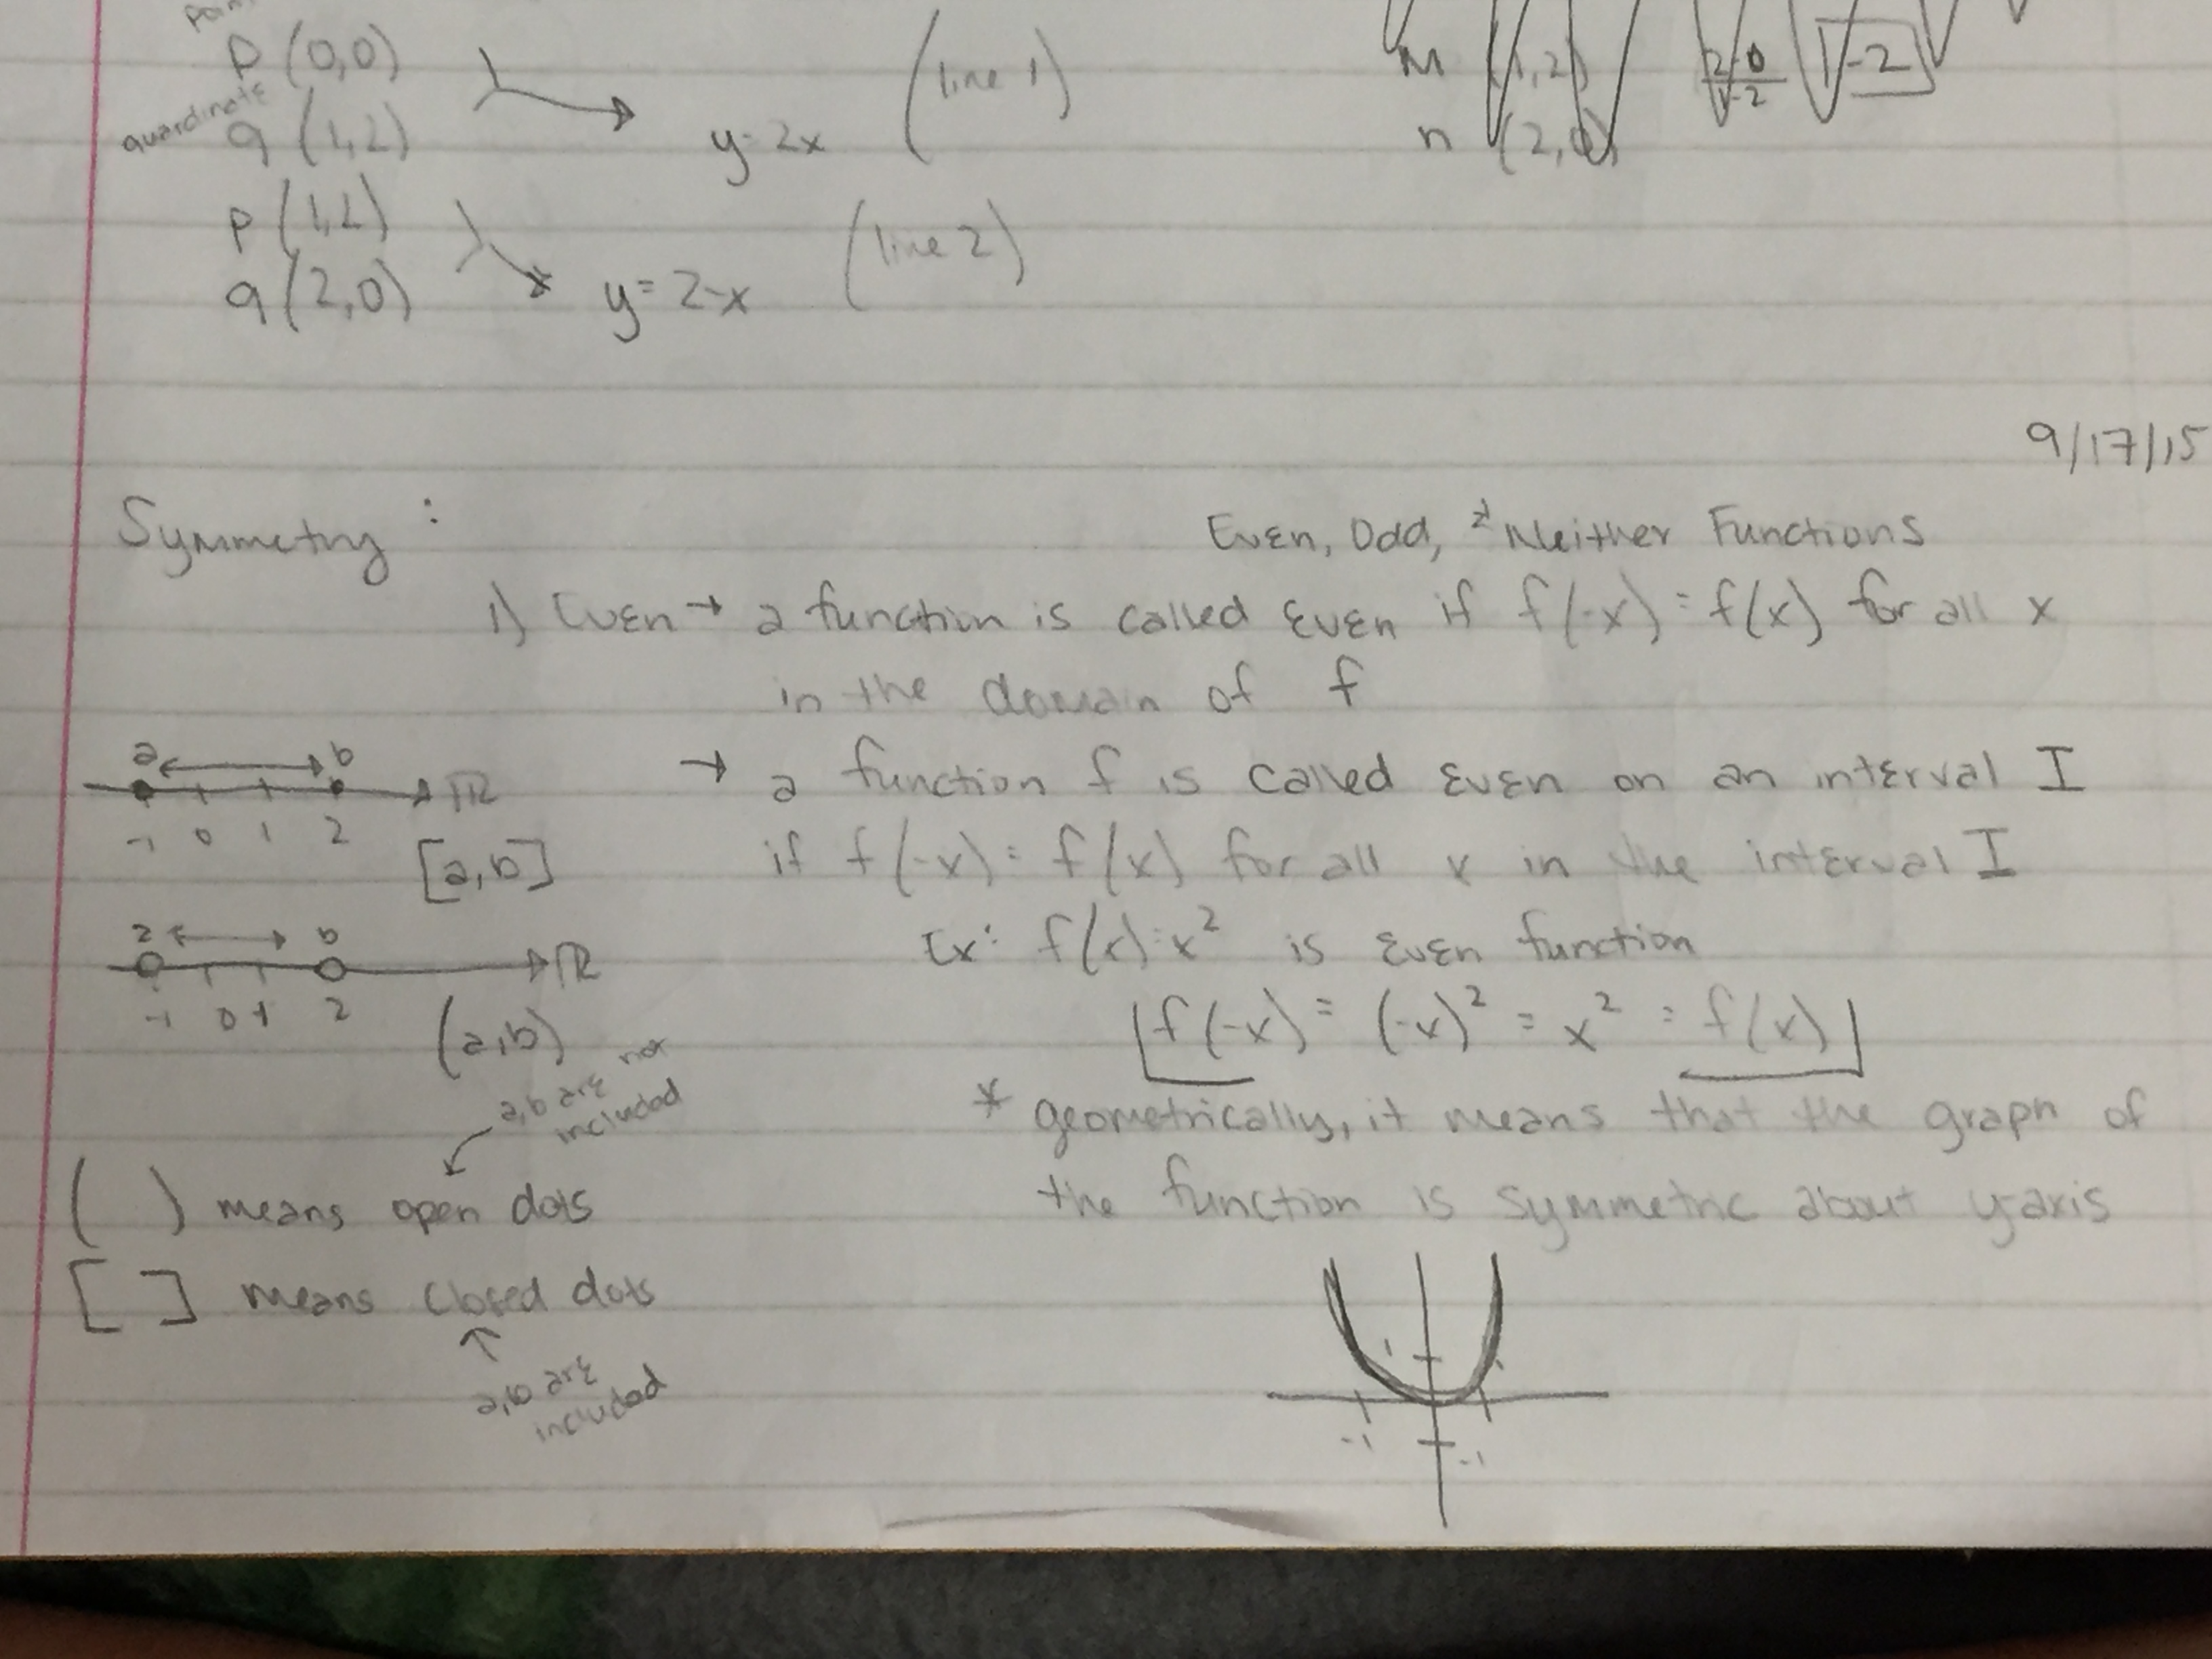 P (0,0)
quardinate
q (1,2)
y=2x (line 1)
M (1,2)
n (2,0)
2-0
1-2
-2
P (1,2)
q (2,0)
y = 2-x (line 2)
9/17/15
Symmetry :
Even, Odd, & Neither Functions
1) Even → a function is called even if f(-x) = f(x) for all x
in the domain of f
→ a function f is called even on an interval I
if f(-x) = f(x) for all x in the interval I
Ex: f(x) = x² is even function
f(-x) = (-x)² = x² = f(x)
* geometrically, it means that the graph of
the function is symmetric about y-axis
1
-1
-1
a b
ℝ
-1 0 1 2
[a,b]
a b
ℝ
-1 0 1 2
(a,b)
a,b are not
included
( ) means open dots
[ ] means closed dots
a,b are
included